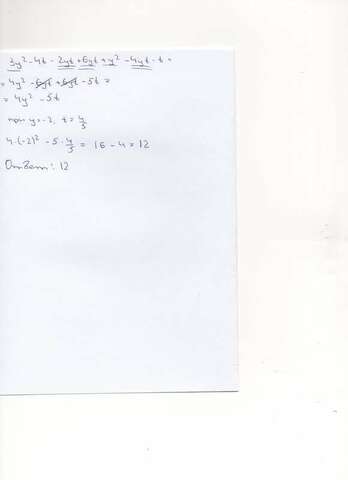 3y² - 4t - 2yt + 6yt + y² - 4yt - t =
= 4y² - 6yt + 6yt - 5t =
= 4y² - 5t
при y = -2, t = 4/5
4·(-2)² - 5·4/5 = 16 - 4 = 12
Ответ: 12